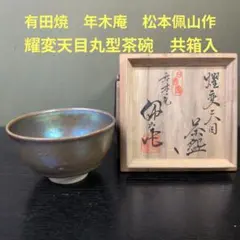 有田焼 年木庵 松本佩山作
耀変天目丸型茶碗 共箱入
耀変天目
茶盌